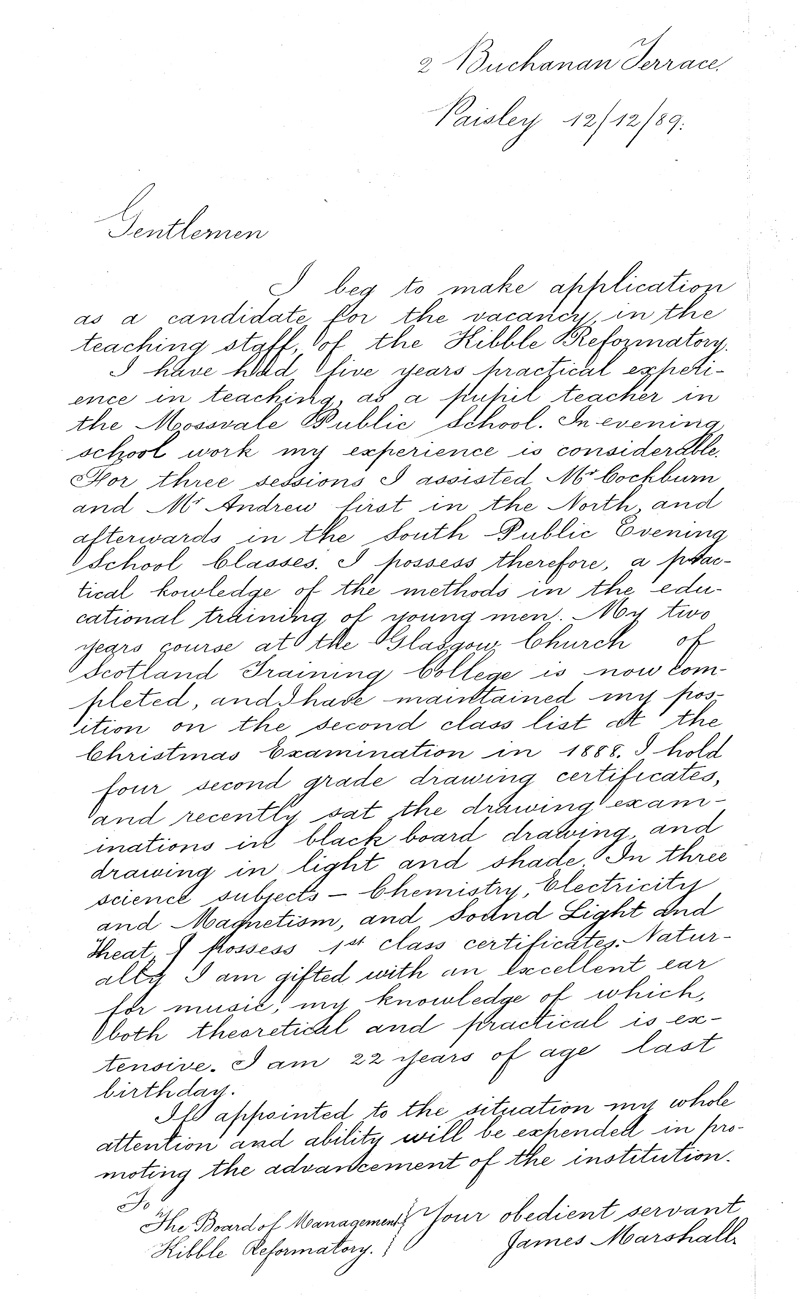 2 Buchanan Terrace.
Paisley 12/12/89.
Gentlemen
I beg to make application
as a candidate for the vacancy, in the
teaching staff, of the Kibble Reformatory.
I have had five years practical experi-
ence in teaching, as a pupil teacher in
the Mossvale Public School. In evening
school work my experience is considerable.
For three sessions I assisted Mr Cockburn
and Mr Andrew first in the North, and
afterwards in the South Public Evening
School Classes. I possess therefore, a prac-
tical kowledge of the methods in the edu-
cational training of young men. My two
years course at the Glasgow Church of
Scotland Training College is now com-
pleted, and I have maintained my pos-
ition on the second class list at the
Christmas Examination in 1888. I hold
four second grade drawing certificates,
and recently sat the drawing exam-
inations in black board drawing, and
drawing in light and shade. In three
science subjects - Chemistry, Electricity
and Magnetism, and Sound Light and
Heat, I possess 1st class certificates. Natur-
ally I am gifted with an excellent ear
for music, my knowledge of which,
both theoretical and practical is ex-
tensive. I am 22 years of age last
birthday.
If appointed to the situation my whole
attention and ability will be expended in pro-
moting the advancement of the institution.
To
The Board of Management
Kibble Reformatory.
Your obedient servant
James Marshall.